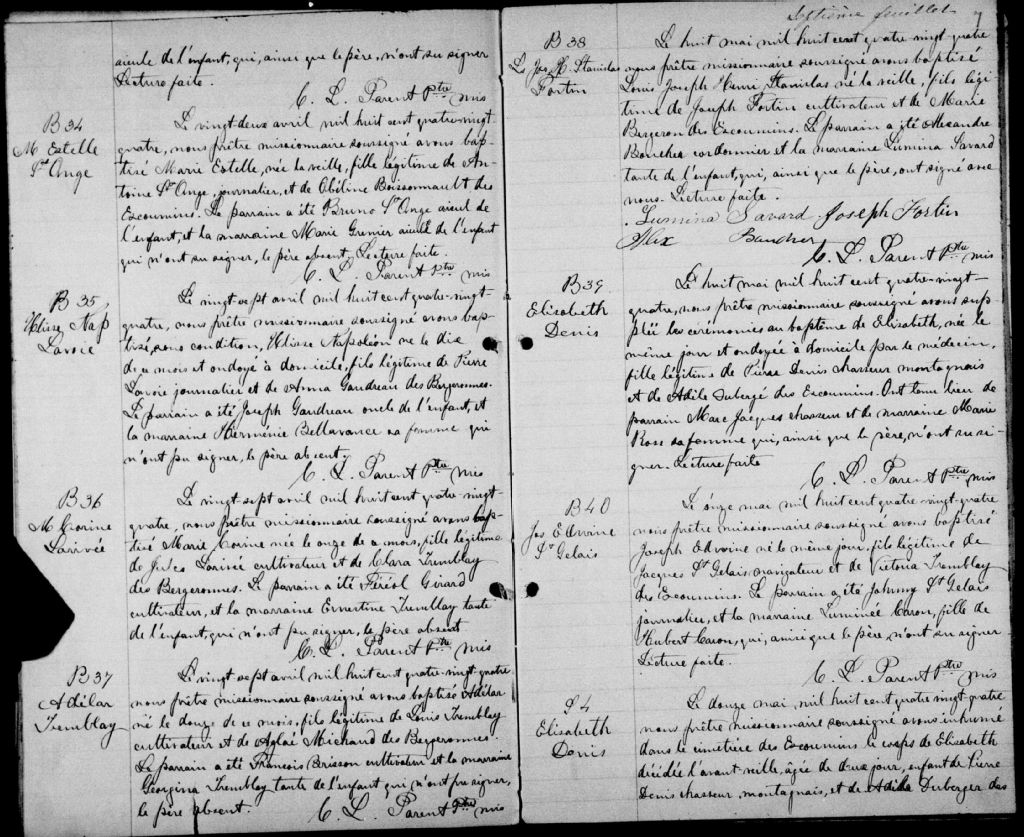 aieule de l'enfant, qui, ainsi que le père, n'ont su signer
Lecture faite.
C. L. Parent Ptre mis
B 34
M Estelle
St Onge
Le vingt-deux avril mil huit cent quatre-vingt-
quatre, nous prêtre missionnaire soussigné avons bap-
tisé Marie Estelle, née la veille, fille légitime de An-
toine St Onge, journalier, et de Obéline Boissonnault des
Escoumins. Le parrain a été Bruno St Onge aieul de
l'enfant, et la marraine Marie Grenier aieule de l'enfant
qui n'ont su signer, le père absent. Lecture faite.
C. L. Parent Ptre mis
B 35
Ulisse Nap
Lavoie
Le vingt-sept avril mil huit cent quatre-vingt-
quatre, nous prêtre missionnaire soussigné avons bap-
tisé, sous condition, Ulisse Napoléon né le dix
de ce mois et ondoyé à domicile, fils légitime de Pierre
Lavoie journalier et de Anna Gaudreau des Bergeronnes.
Le parrain a été Joseph Gaudreau oncle de l'enfant, et
la marraine Herménie Bellavance sa femme qui
n'ont pu signer, le père absent.
C. L. Parent Ptre mis
B 36
M Corine
Larivée
Le vingt sept avril mil huit cent quatre-vingt-
quatre, nous prêtre missionnaire soussigné avons bap-
tisé Marie Corine née le onze de ce mois, fille légitime
de Jules Larivée cultivateur et de Clara Tremblay
des Bergeronnes. Le parrain a été Féréol Girard
cultivateur, et la marraine Ernestine Tremblay tante
de l'enfant, qui n'ont pu signer, le père absent.
C. L. Parent Ptre mis
B 37
Adélar
Tremblay
Le vingt sept avril mil huit cent quatre-vingt-quatre
nous prêtre missionnaire soussigné avons baptisé Adélar
né le douze de ce mois, fils légitime de Louis Tremblay
cultivateur et de Aglaé Michaud des Bergeronnes.
Le parrain a été François Brisson cultivateur et la marraine
Georgina Tremblay tante de l'enfant qui n'ont pu signer,
le père absent.
C. L. Parent Ptre mis
Septième feuillet 7
B 38
L. Jos. H. Stanislas
Fortin
Le huit mai mil huit cent quatre-vingt-quatre
nous prêtre missionnaire soussigné avons baptisé
Louis Joseph Henri Stanislas né la veille, fils légi-
time de Joseph Fortin cultivateur et de Marie
Bergeron des Escoumins. Le parrain a été Alexandre
Boucher cordonnier et la marraine Lumina Savard
tante de l'enfant, qui, ainsi que le père, ont signé avec
nous. Lecture faite.
Lumina Savard Joseph Fortin
Alex Boucher
C. L. Parent Ptre mis
B 39
Elisabeth
Denis
Le huit mai mil huit cent quatre-vingt-
quatre, nous prêtre missionnaire soussigné avons sup-
plée les cérémonies au baptême de Elisabeth, née le
même jour et ondoyée à domicile par le médecin,
fille légitime de Pierre Denis chasseur montagnais
et de Adile Dubergé des Escoumins. Ont tenu lieu de
parrain Marc Jacques chasseur et de marraine Marie
Rose sa femme qui, ainsi que le père, n'ont su si-
gner. Lecture faite
C. L. Parent Ptre mis
B 40
Jos Edvoine
St Gelais
Le onze mai mil huit cent quatre-vingt-quatre
nous prêtre missionnaire soussigné avons baptisé
Joseph Edvoine né le même jour, fils légitime de
Jacques St Gelais navigateur et de Victoria Tremblay
des Escoumins. Le parrain a été Johnny St Gelais
journalier, et la marraine Luminée Caron, fille de
Hubert Caron, qui, ainsi que le père, n'ont su signer
Lecture faite.
C. L. Parent Ptre mis
S 4
Elisabeth
Denis
Le douze mai, mil huit cent quatre vingt quatre
nous prêtre missionnaire soussigné avons inhumé
dans le cimetière des Escoumins le corps de Elisabeth
décédée l'avant-veille, âgée de deux jour, enfant de Pierre
Denis chasseur, montagnais, et de Adile Duberger des